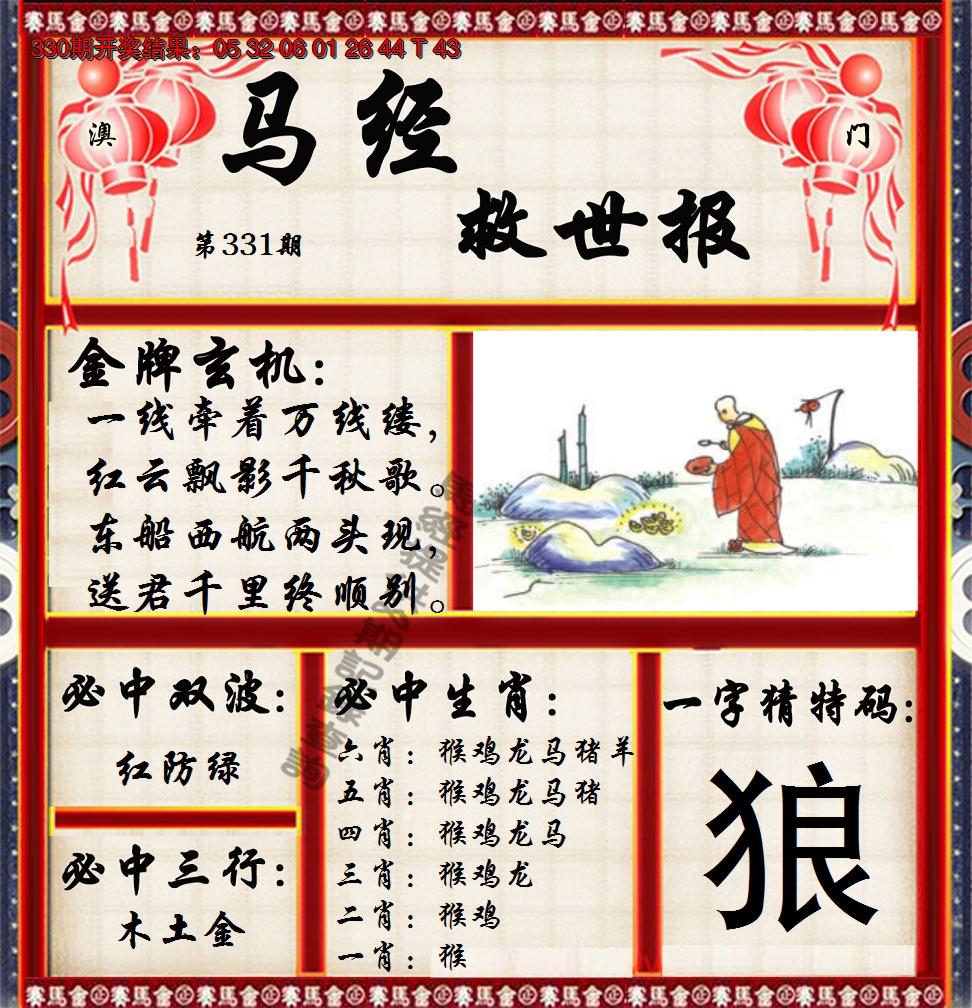 330期开奖结果：05 32 06 01 26 44 T 43
澳
门
马经
救世报
第331期
金牌玄机：
一线牵着万线缕，
红云飘影千秋歌。
东船西航两头现，
送君千里终顺别。
必中双波：
红防绿
必中三行：
木土金
必中生肖：
六肖：猴鸡龙马猪羊
五肖：猴鸡龙马猪
四肖：猴鸡龙马
三肖：猴鸡龙
二肖：猴鸡
一肖：猴
一字猜特码：
狼